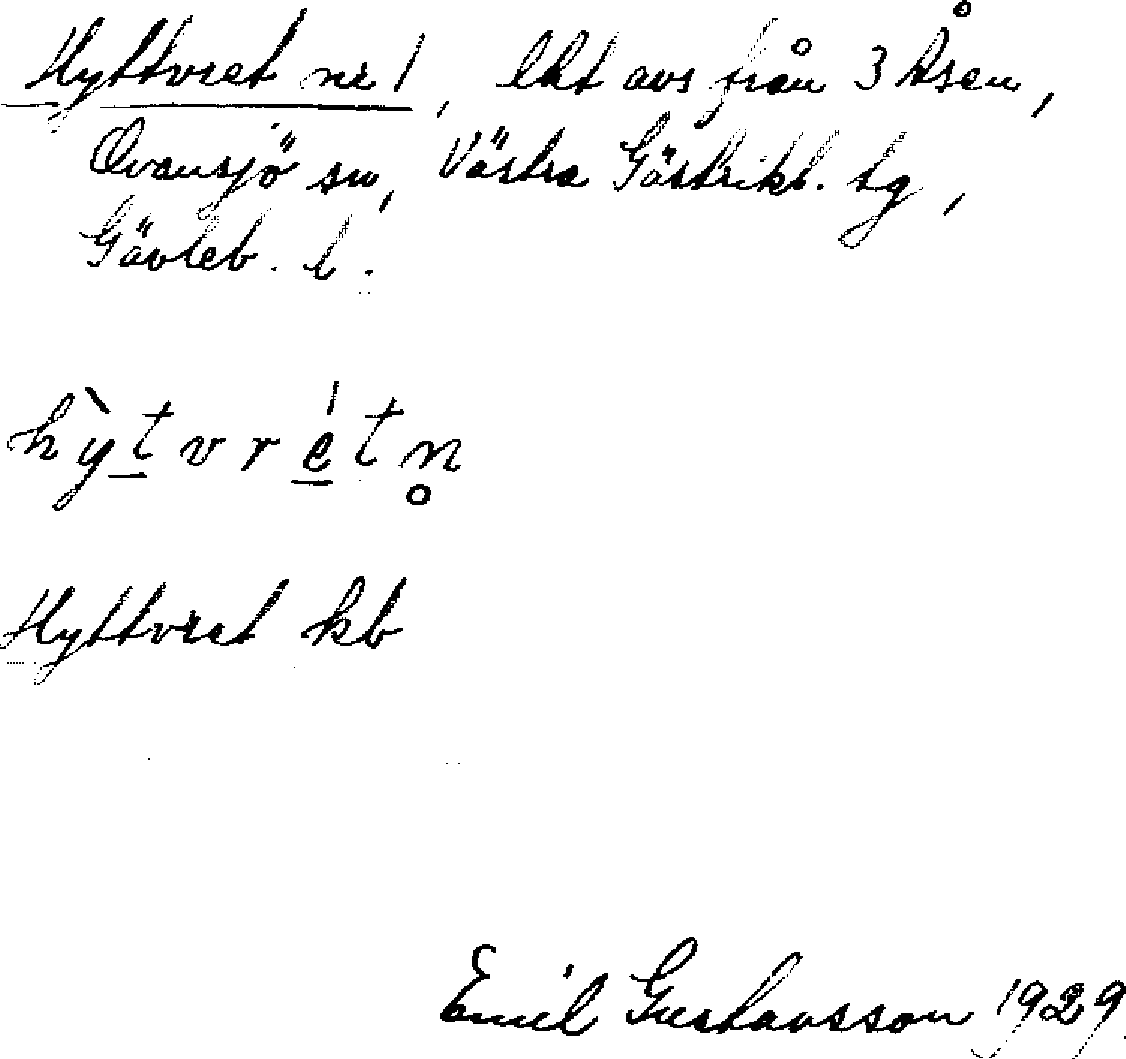 Hyttvret nr 1, lht avs från 3 Åsen,
Ovansjö sn, Västra Gästrikl. tg,
Gävleb. l.
hỳt̲vré̲tn̥
Hyttvret kb
Emil Gustavsson 1929.